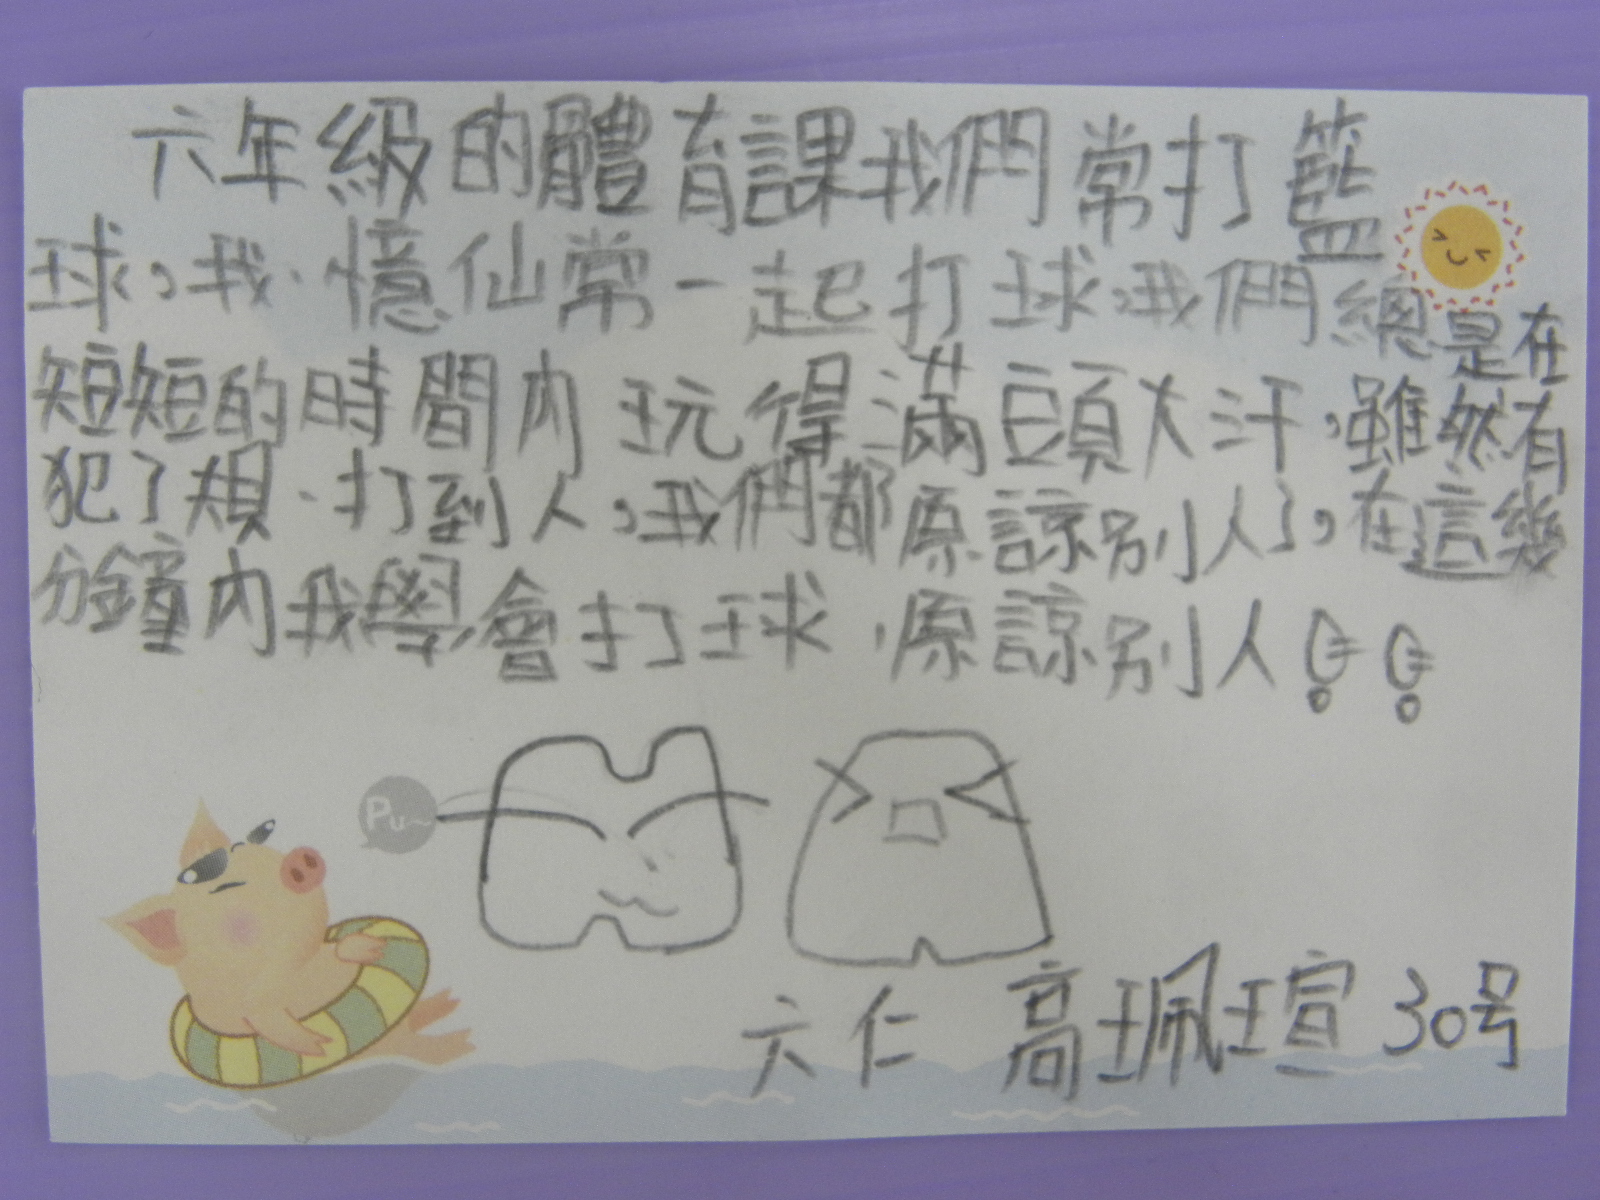 六年級的體育課我們常打籃
球，我、憶仙常一起打球，我們總是在
短短的時間內玩得滿頭大汗，雖然有
犯了規、打到人，我們都原諒別人了，在這幾
分鐘內我學會打球、原諒別人！！
Pu~
六仁 高珮瑄 30号